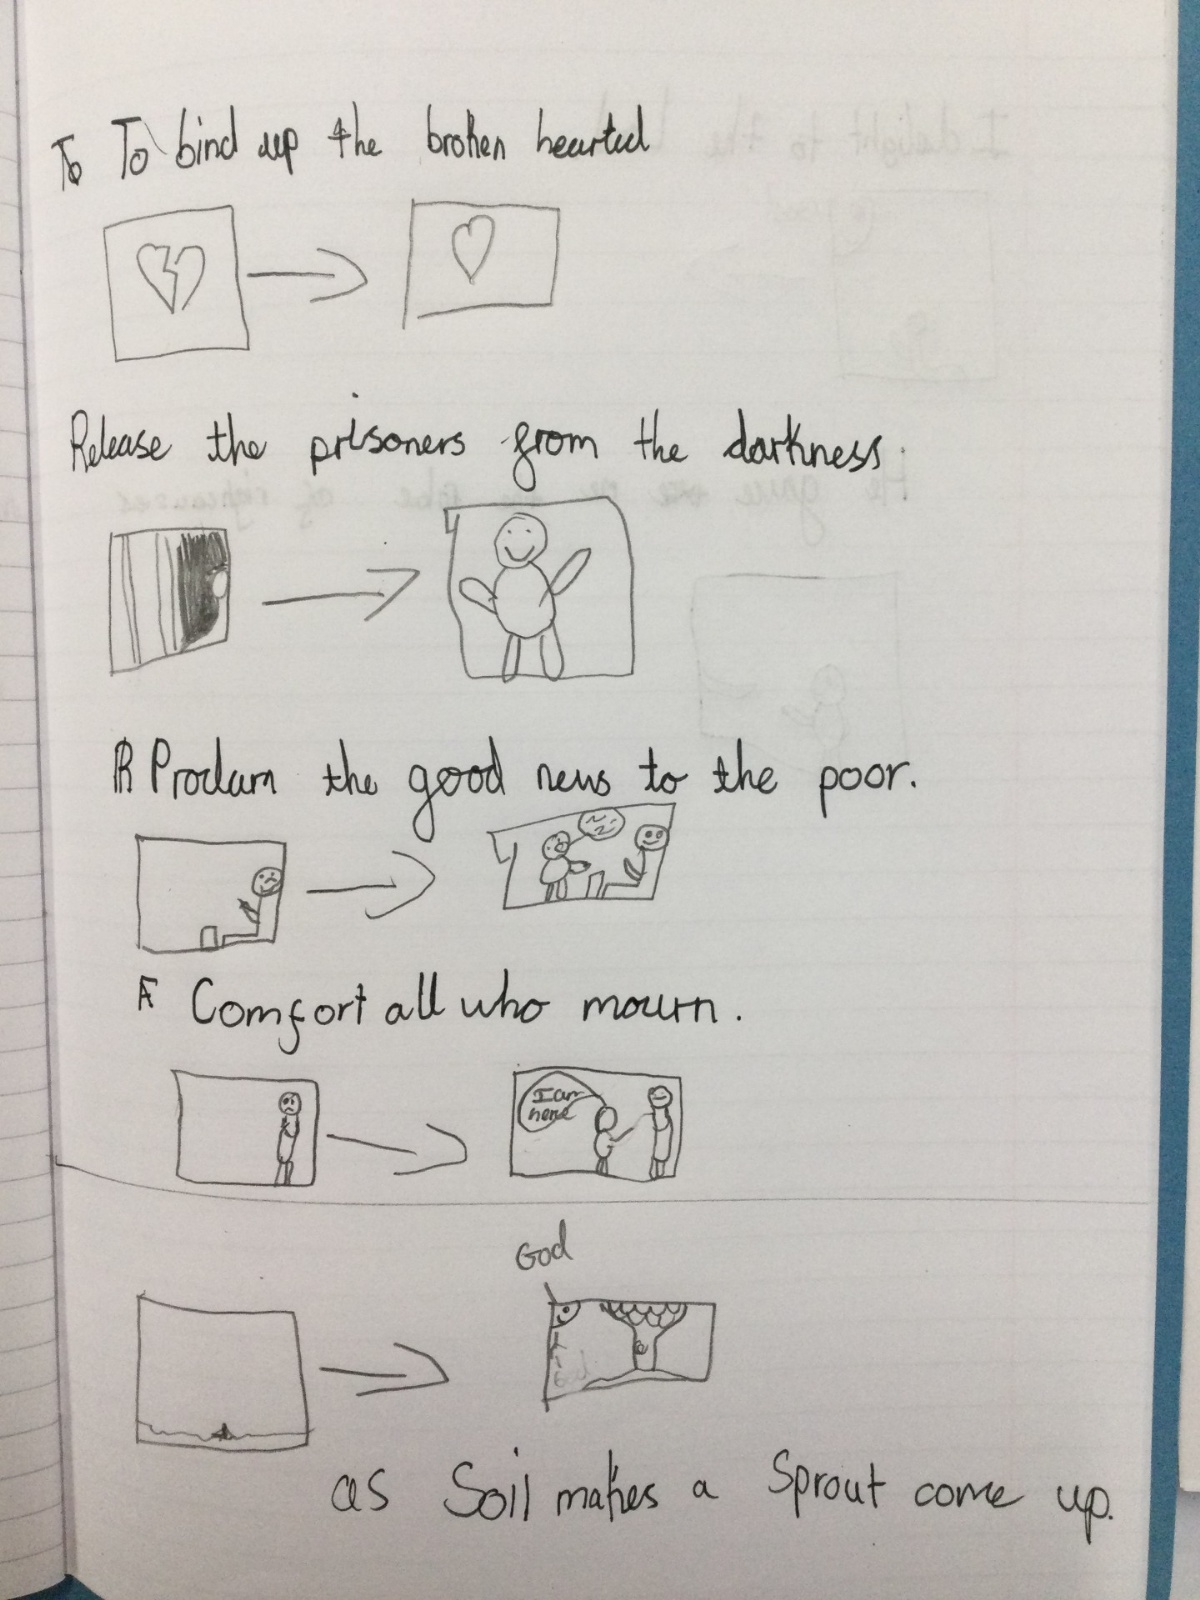 To To bind up the broken hearted
Release the prisoners from the darkness.
R Proclam the good news to the poor.
F Comfort all who mourn.
I am
here
God
as Soil makes a Sprout come up.